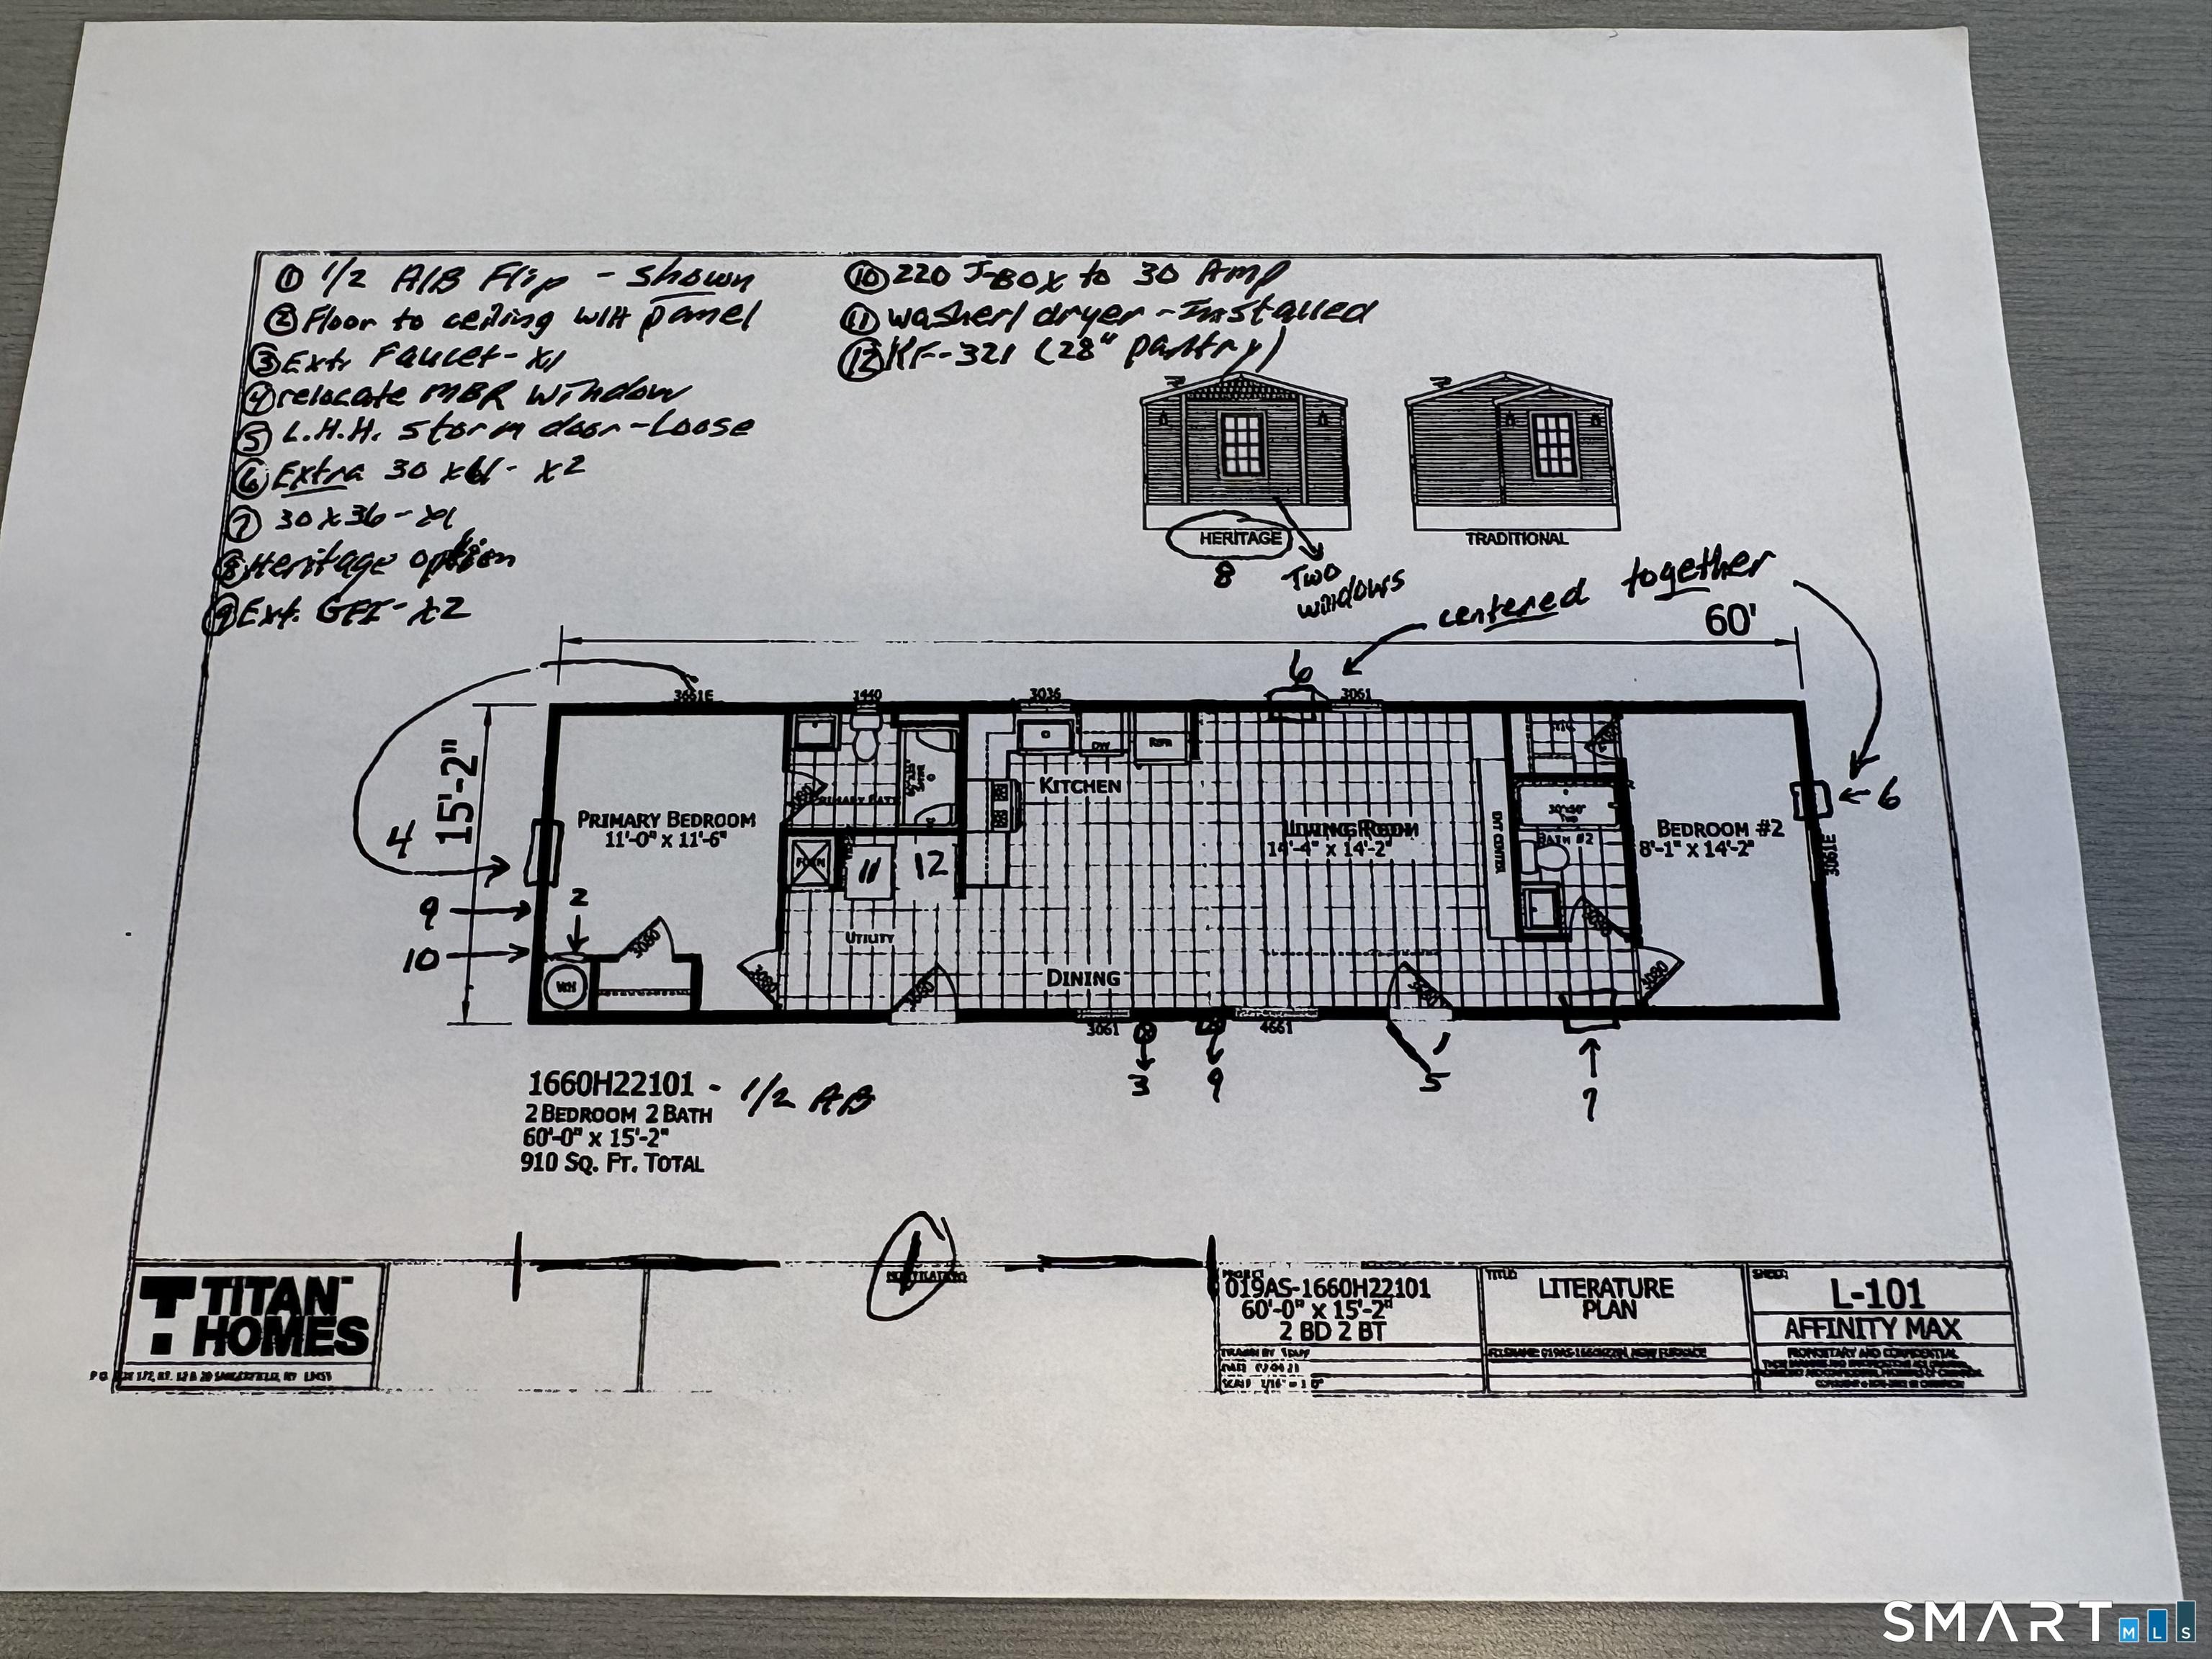 ① 1/2 A/B Flip - shown
② Floor to ceiling WH panel
③ Ext. Faucet - x1
④ relocate MBR window
⑤ L.H.H. storm door - Loose
⑥ Extra 30 x 61 - x2
⑦ 30 x 36 - x1
⑧ Heritage option
⑨ Ext. GFI - x2
⑩ 220 J-Box to 30 Amp
⑪ washer/dryer - Installed
⑫ KF-321 (28" pantry)
HERITAGE
TRADITIONAL
8
Two
windows
centered together
60'
6
3661E
1440
3036
3061
15'-2"
DW
REF
KITCHEN
PRIMARY BATH
PRIMARY BEDROOM
11'-0" x 11'-6"
4
FURN
11
12
LIVING ROOM
14'-4" x 14'-2"
ENT CENTER
BATH #2
BEDROOM #2
8'-1" x 14'-2"
6
3061E
9
2
10
WH
3080
3080
UTILITY
DINING
3080
3061
4661
3
9
5
7
1660H22101 - 1/2 AB
2 BEDROOM 2 BATH
60'-0" x 15'-2"
910 SQ. FT. TOTAL
1
TITAN
HOMES
PROJECT
019AS-1660H22101
60'-0" x 15'-2"
2 BD 2 BT
TITLE
LITERATURE
PLAN
SHEET
L-101
AFFINITY MAX
PROPRIETARY AND CONFIDENTIAL
SMART MLS